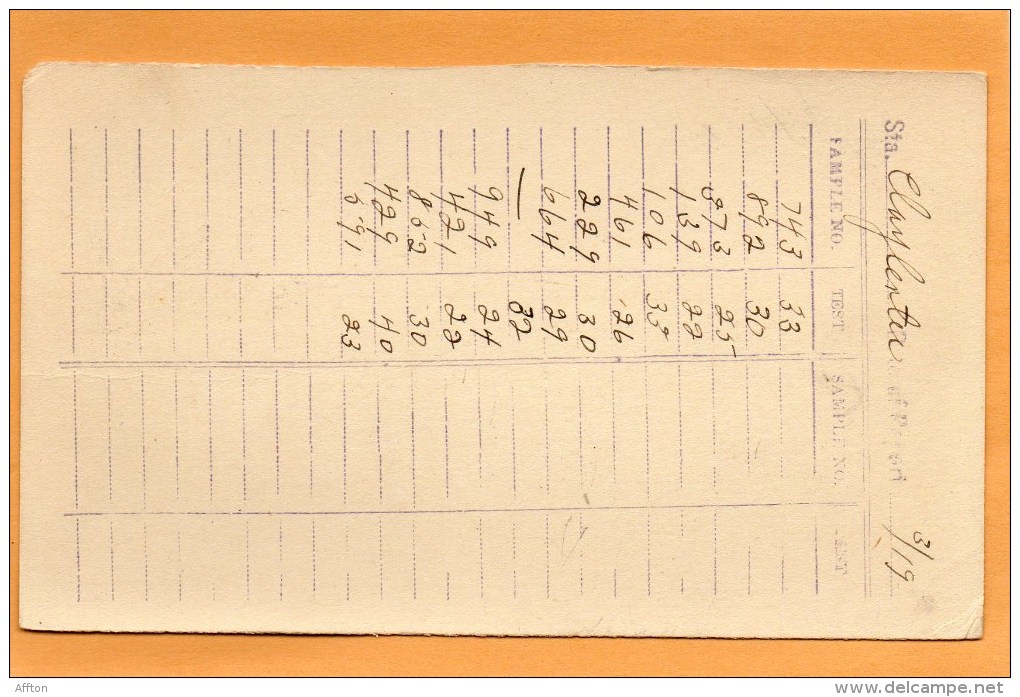 Sta. of Report 3/19
SAMPLE NO. TEST SAMPLE NO. TEST
743 33
892 30
873 25
139 22
106 35
461 26
229 30
664 29
— 32
949 24
421 22
862 30
429 40
691 23
Affton
www.delcampe.net